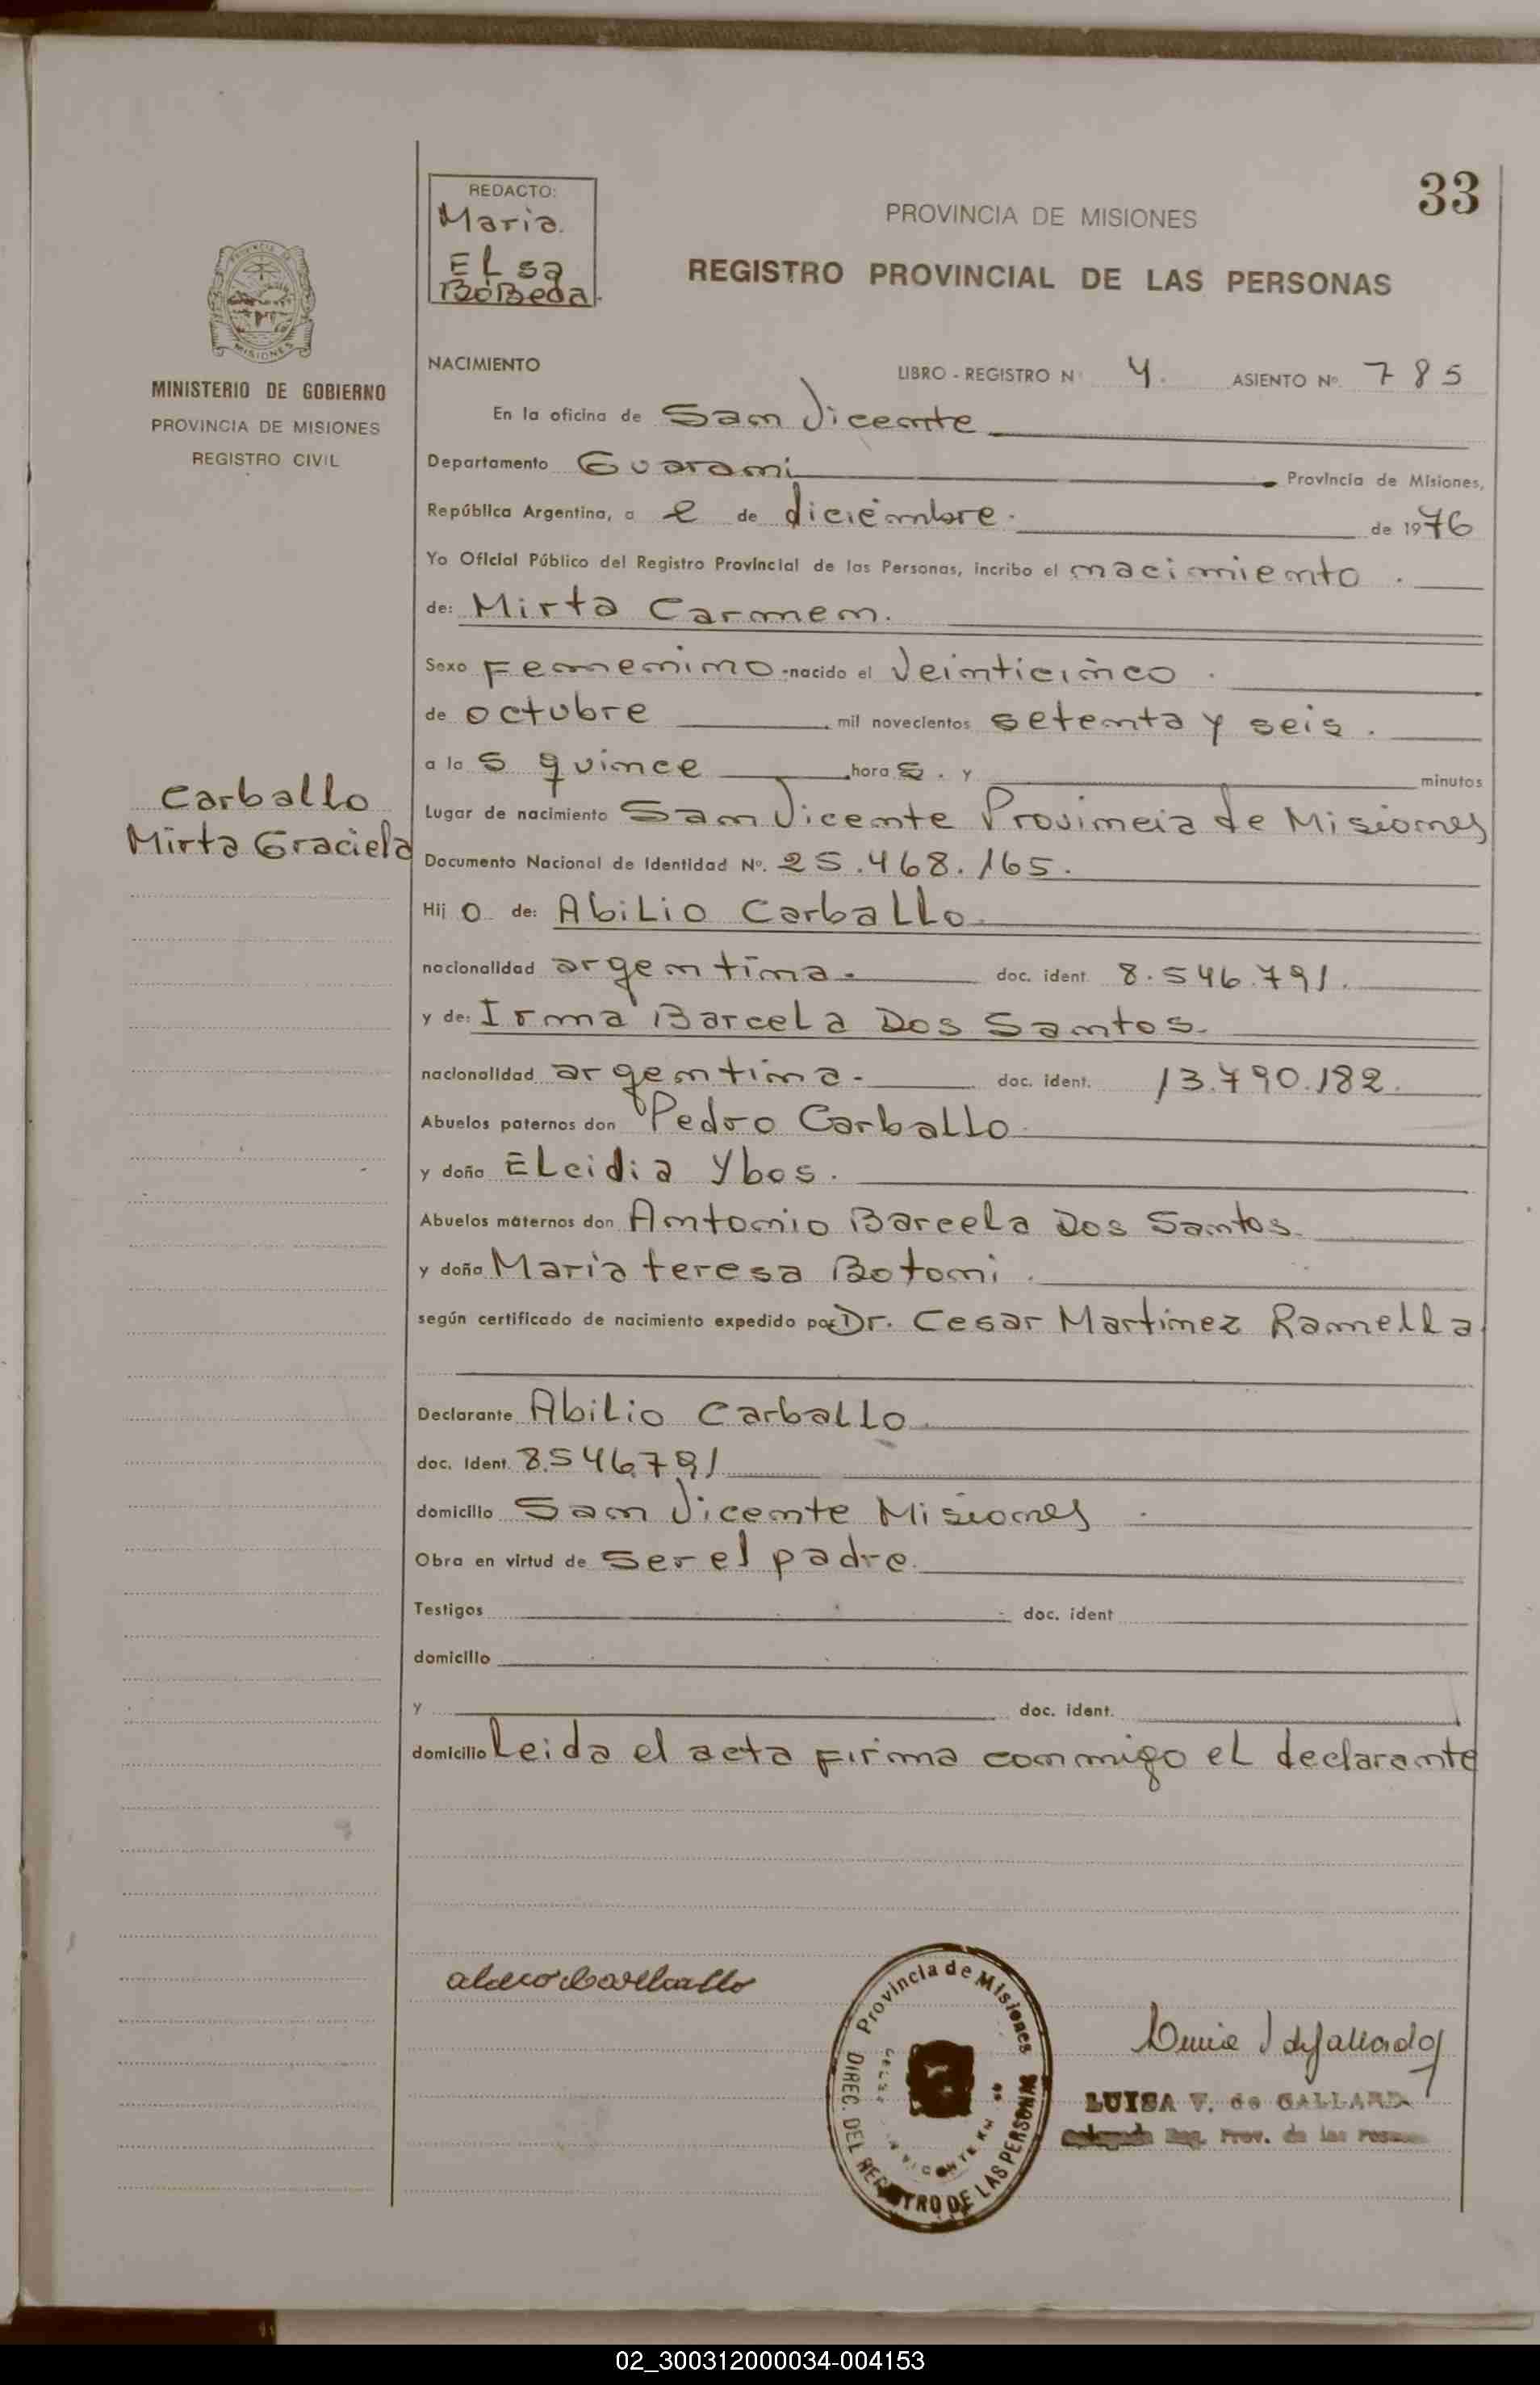 33
REDACTO:
Maria.
ELsa
BóBeda.
PROVINCIA DE MISIONES
REGISTRO PROVINCIAL DE LAS PERSONAS
MISIONES
MINISTERIO DE GOBIERNO
PROVINCIA DE MISIONES
REGISTRO CIVIL
NACIMIENTO LIBRO - REGISTRO Nº 4. ASIENTO Nº. 785
En la oficina de San Vicente
Departamento Guarani Provincia de Misiones,
República Argentina, a 2 de diciembre. de 1976
Yo Oficial Público del Registro Provincial de las Personas, incribo el nacimiento.
de: Mirta Carmen.
Sexo Femenino nacido el Veinticinco.
de octubre mil novecientos setenta y seis.
a las quince horas. y minutos
Carballo
Mirta Graciela
Lugar de nacimiento San Vicente Provincia de Misiones
Documento Nacional de Identidad Nº. 25.468.165.
Hijo de: AbiLio CarbaLLo
nacionalidad argentina. doc. ident. 8.546.791.
y de: Irma BarceLa Dos Santos.
nacionalidad argentina. doc. ident. 13.790.182.
Abuelos paternos don Pedro CarbaLLo
y doña ELcidia Ybos.
Abuelos maternos don Antonio BarceLa Dos Santos.
y doña Maria teresa Botoni.
según certificado de nacimiento expedido por Dr. Cesar Martinez Ramella.
Declarante AbiLio CarbaLLo.
doc. Ident. 8.546.791
domicilio San Vicente Misiones.
Obra en virtud de Ser el padre.
Testigos doc. ident
domicilio
y doc. ident.
domicilio Leida el acta Firma conmigo eL declarante
Provincia de Misiones
DIREC. DEL REGISTRO DE LAS PERSONAS
LUISA V. de GALLARD
Reg. Prov. de las
02_300312000034-004153